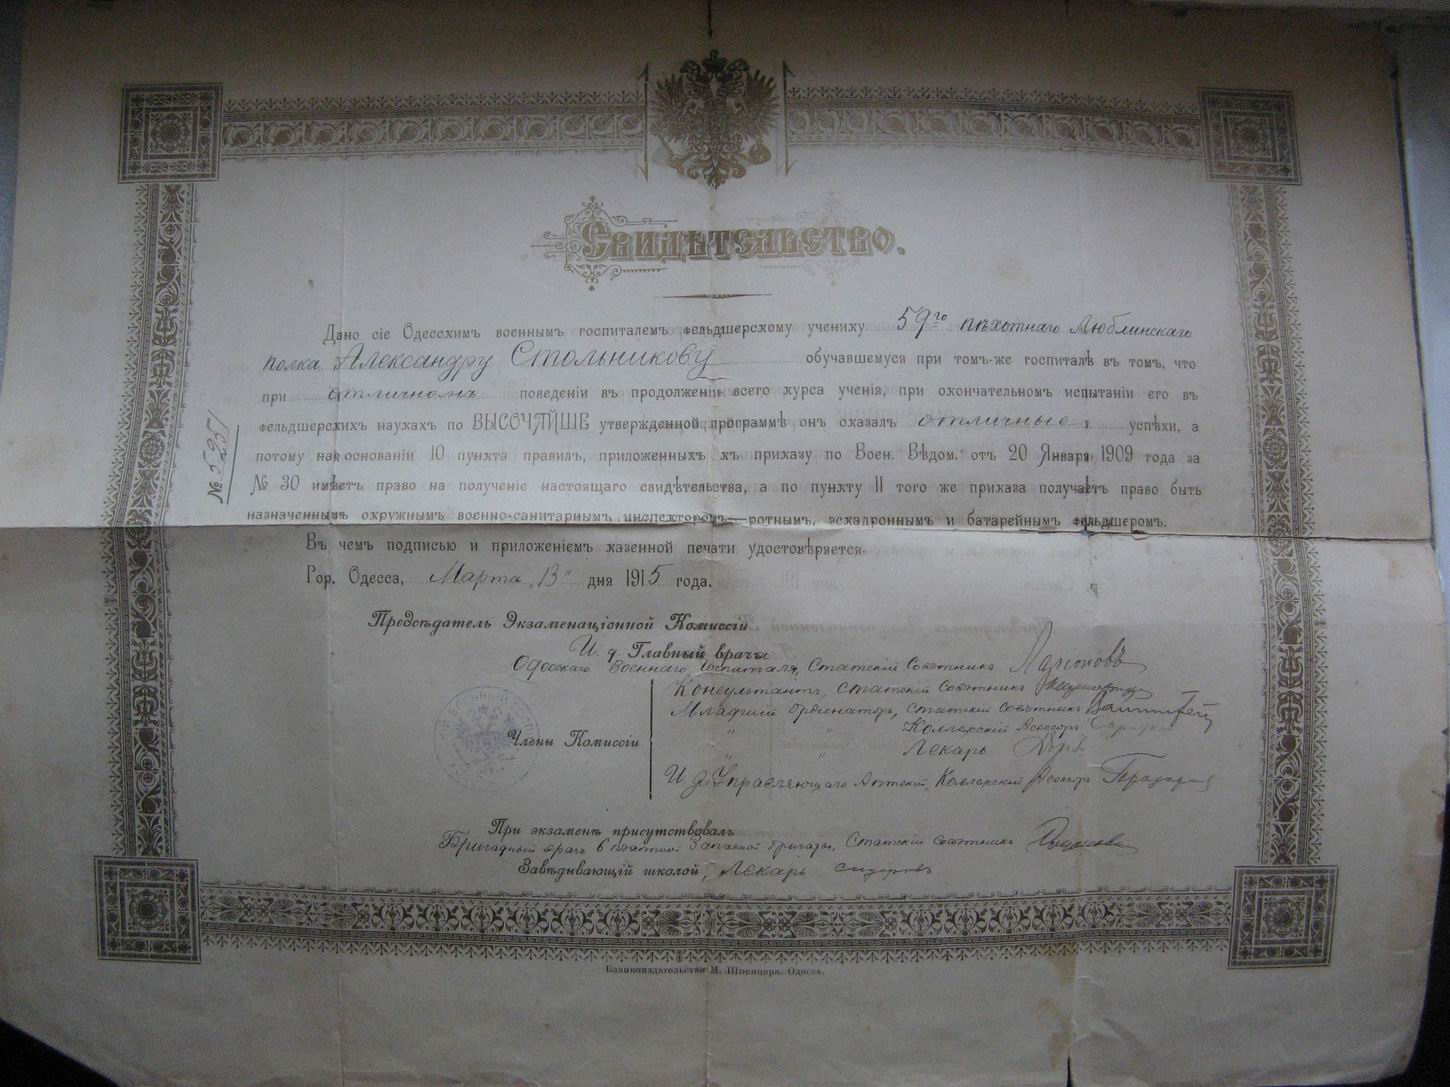 Свидѣтельство.
Дано сіе Одесскимъ военнымъ госпиталемъ фельдшерскому ученику 59го пѣхотнаго Люблинскаго
полка Александру Стольникову обучавшемуся при томъ-же госпиталѣ въ томъ, что
при отличномъ поведеніи въ продолженіи всего курса ученія, при окончательномъ испытаніи его въ
фельдшерскихъ наукахъ по ВЫСОЧАЙШЕ утвержденной программѣ онъ оказалъ отличные успѣхи, а
потому на основаніи 10 пункта правилъ, приложенныхъ къ приказу по Воен. Вѣдом. отъ 20 Января 1909 года за
№ 30 имѣетъ право на полученіе настоящаго свидѣтельства, а по пункту II того же приказа получаетъ право быть
назначеннымъ окружнымъ военно-санитарнымъ инспекторомъ ротнымъ, эскадроннымъ и батарейнымъ фельдшеромъ.
Въ чемъ подписью и приложеніемъ казенной печати удостовѣряется.
Гор. Одесса, Марта „13" дня 1915 года.
№ 5251
Предсѣдатель Экзаменаціонной Комиссіи
И. д. Главный врачъ
Одесскаго военнаго госпиталя, Статскій Совѣтникъ Ларіоновъ
Консультантъ, Статскій Совѣтникъ
Младшій Ординаторъ, Статскій Совѣтникъ
" " Коллежскій Асессоръ
Члены Комиссіи
" " Лекарь
И. д. Управляющаго Аптекой, Коллежскій Асессоръ
При экзаменѣ присутствовалъ
Бригадный врачъ 6 пѣхотной Запасной бригады, Статскій Совѣтникъ
Завѣдывающій школой, Лекарь Сидоровъ
Бланкоиздательство М. Шпенцера. Одесса.